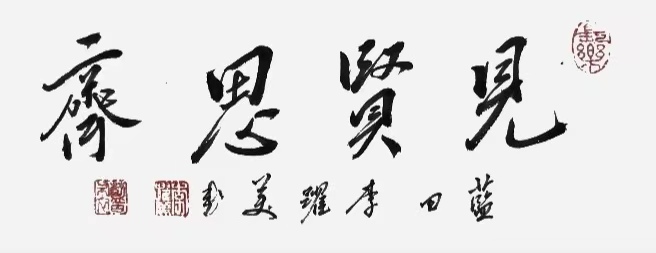 見賢思齊
藍田李躍美書